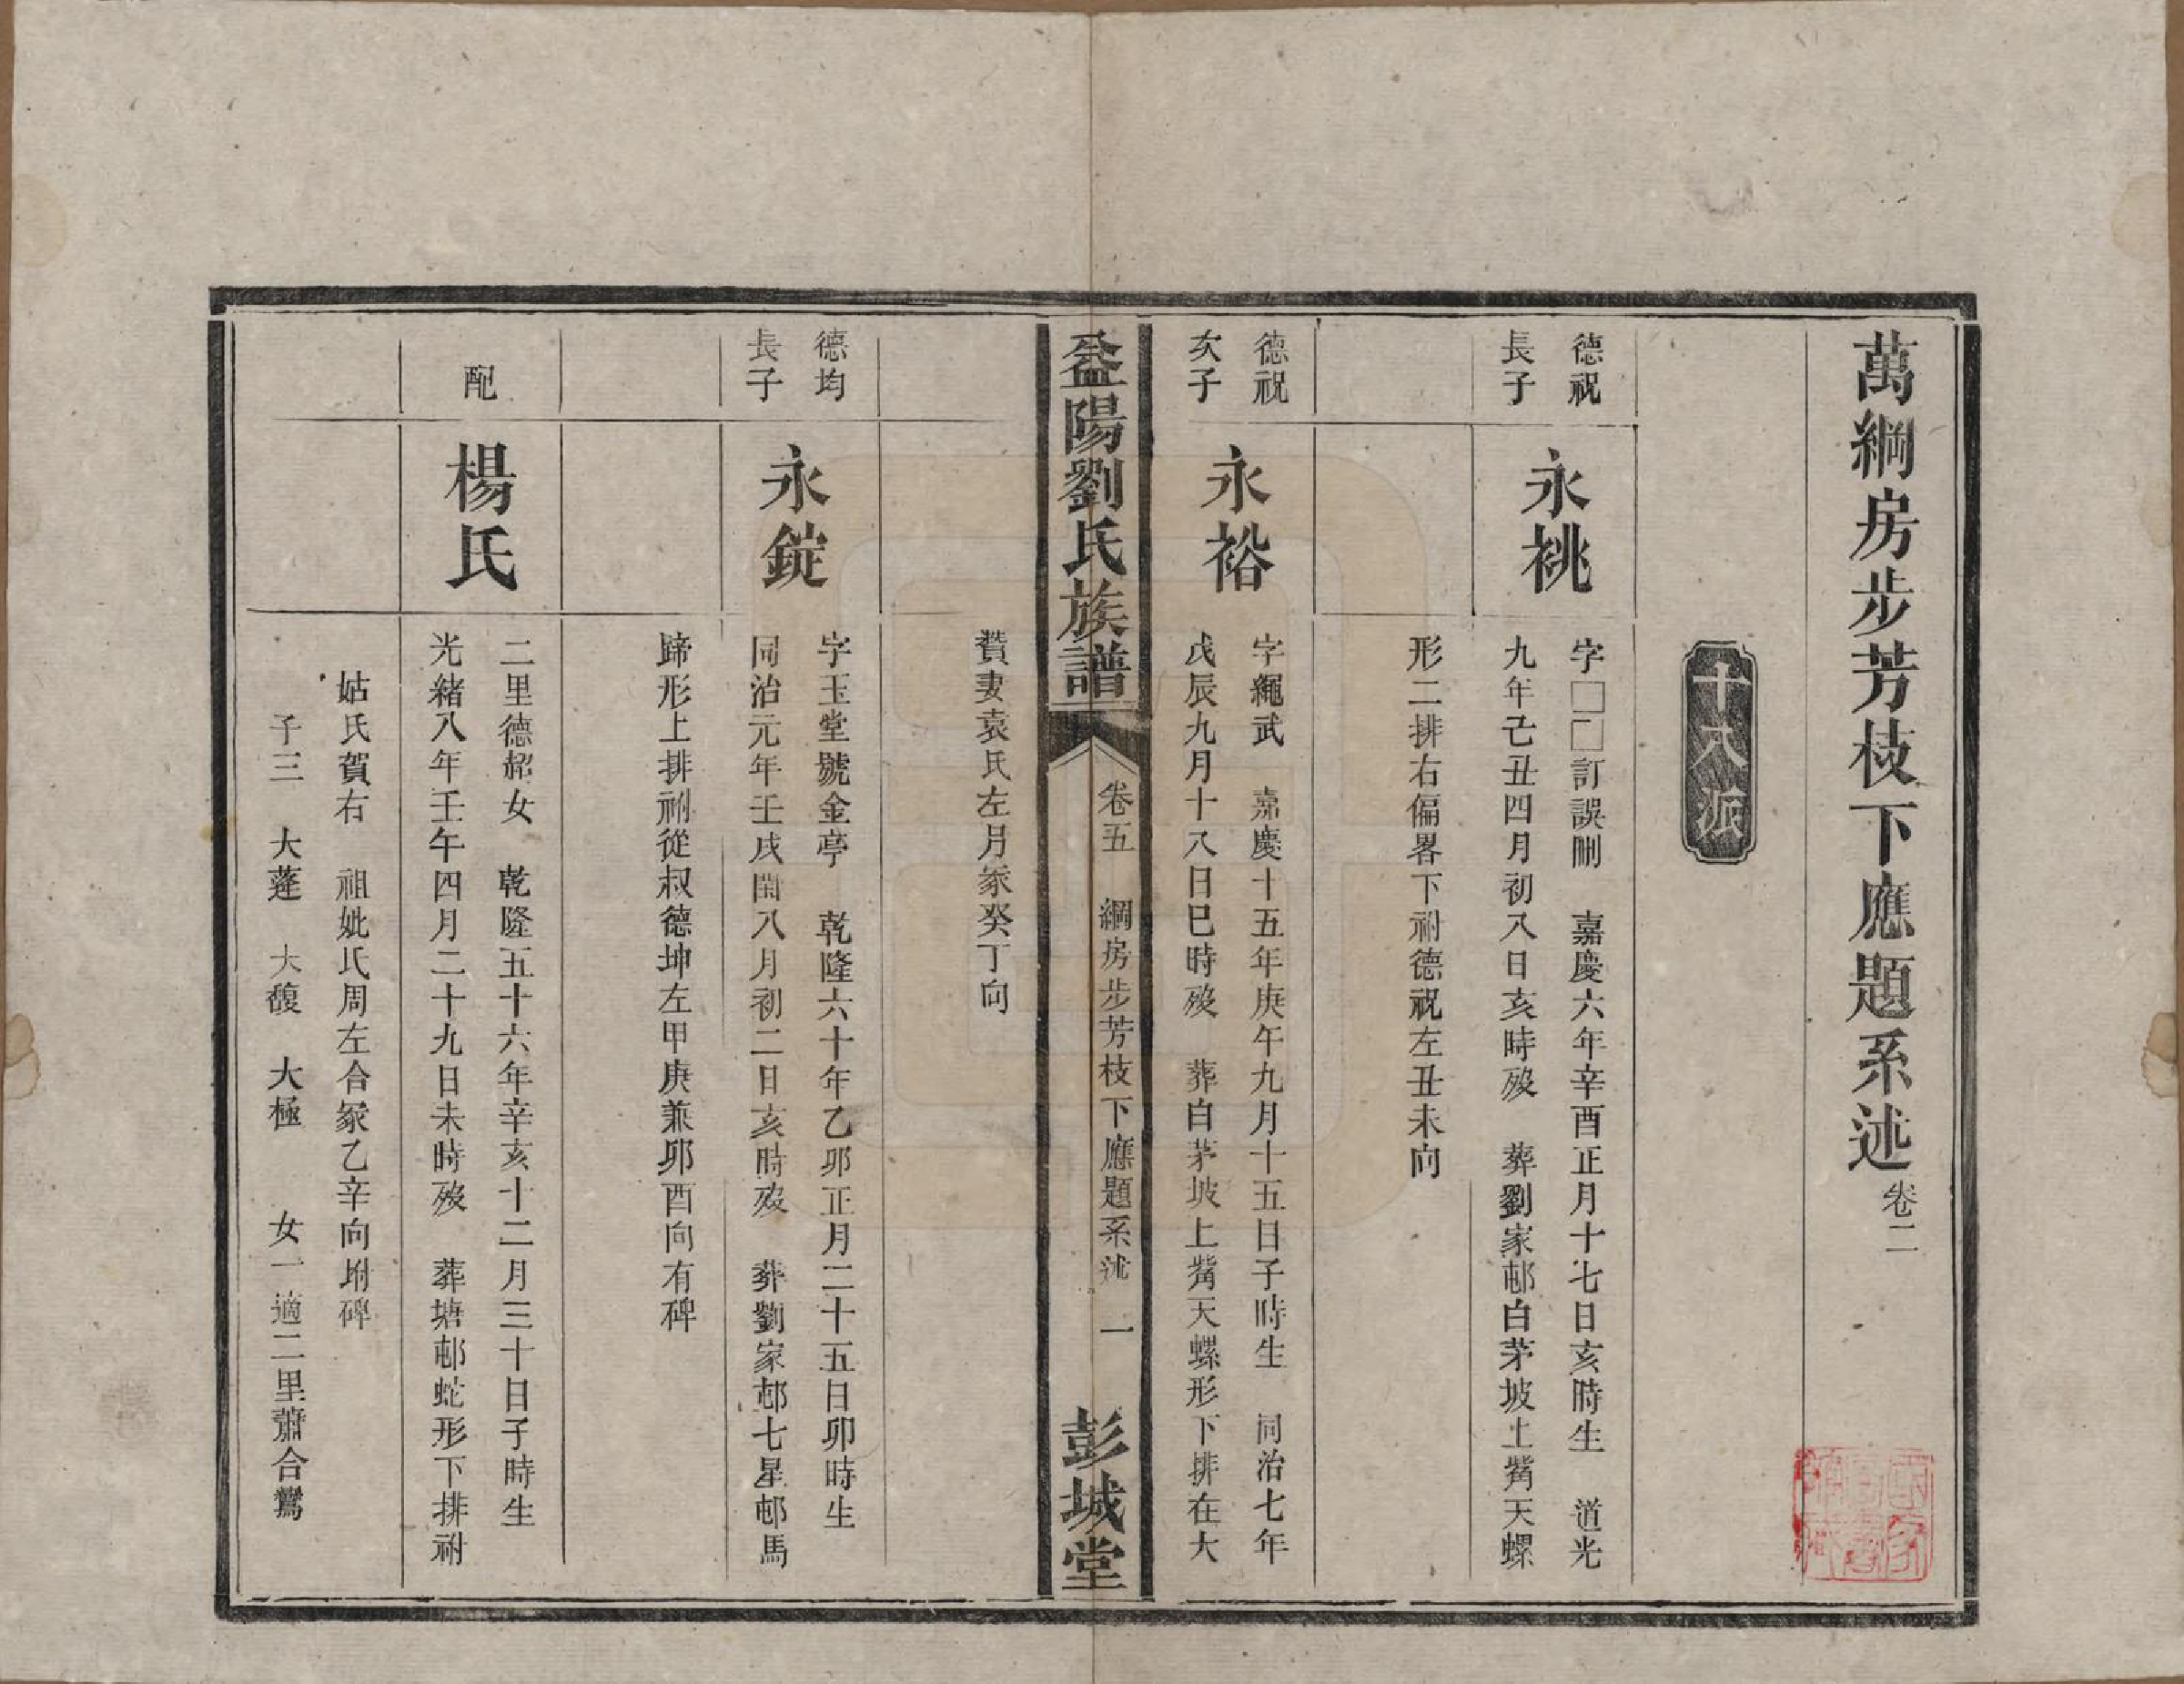 萬綱房步芳枝下應題系述卷二
十八派
德祝
長子
永祧
字□□訂誤刪　嘉慶六年辛酉正月十七日亥時生　道光
九年己丑四月初八日亥時歿　葬劉家邨白茅坡上觜天螺
形二排右偏畧下祔德祝左丑未向
德祝
次子
永裕
字繩武　嘉慶十五年庚午九月十五日子時生　同治七年
戊辰九月十八日巳時歿　葬白茅坡上觜天螺形下排在大
益陽劉氏族譜
卷五　綱房步芳枝下應題系述　一
彭城堂
贊妻袁氏左月冢癸丁向
德均
長子
永錠
字玉堂號金亭　乾隆六十年乙卯正月二十五日卯時生
同治元年壬戌閏八月初二日亥時歿　葬劉家邨七星邨馬
蹄形上排祔從叔德坤左甲庚兼卯酉向有碑
配
楊氏
二里德紹女　乾隆五十六年辛亥十二月三十日子時生
光緒八年壬午四月二十九日未時歿　葬塘邨蛇形下排祔
姑氏賀右　祖妣氏周左合冢乙辛向坿碑
子三　大蓬　大馥　大極　女一適二里蕭合鸞